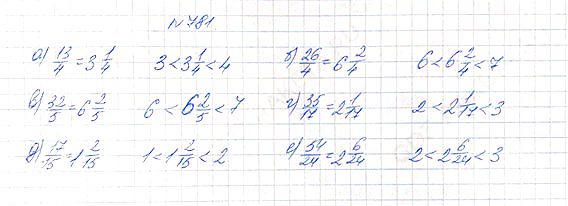 № 781
а) 13/4 = 3 1/4   3 < 3 1/4 < 4   б) 26/4 = 6 2/4   6 < 6 2/4 < 7
в) 32/5 = 6 2/5   6 < 6 2/5 < 7   г) 35/17 = 2 1/17   2 < 2 1/17 < 3
д) 17/15 = 1 2/15   1 < 1 2/15 < 2   е) 54/24 = 2 6/24   2 < 2 6/24 < 3